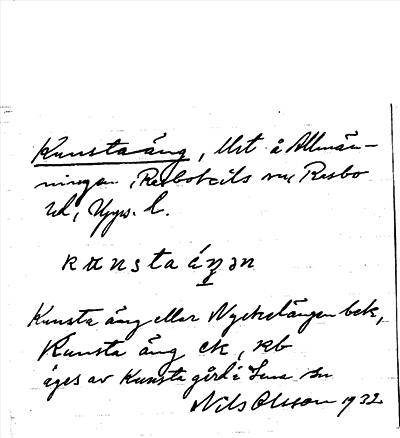 Kunstaäng, Utst å Allmän-
ningen, Rasbokils sn, Rasbo
hd, Upps. l.
kunstaáŋən
Kunsta äng eller Nyckelängen bek,
Kunsta äng ek,
äges av Kunsta gård i Lena sn
Nils Olsson 1932